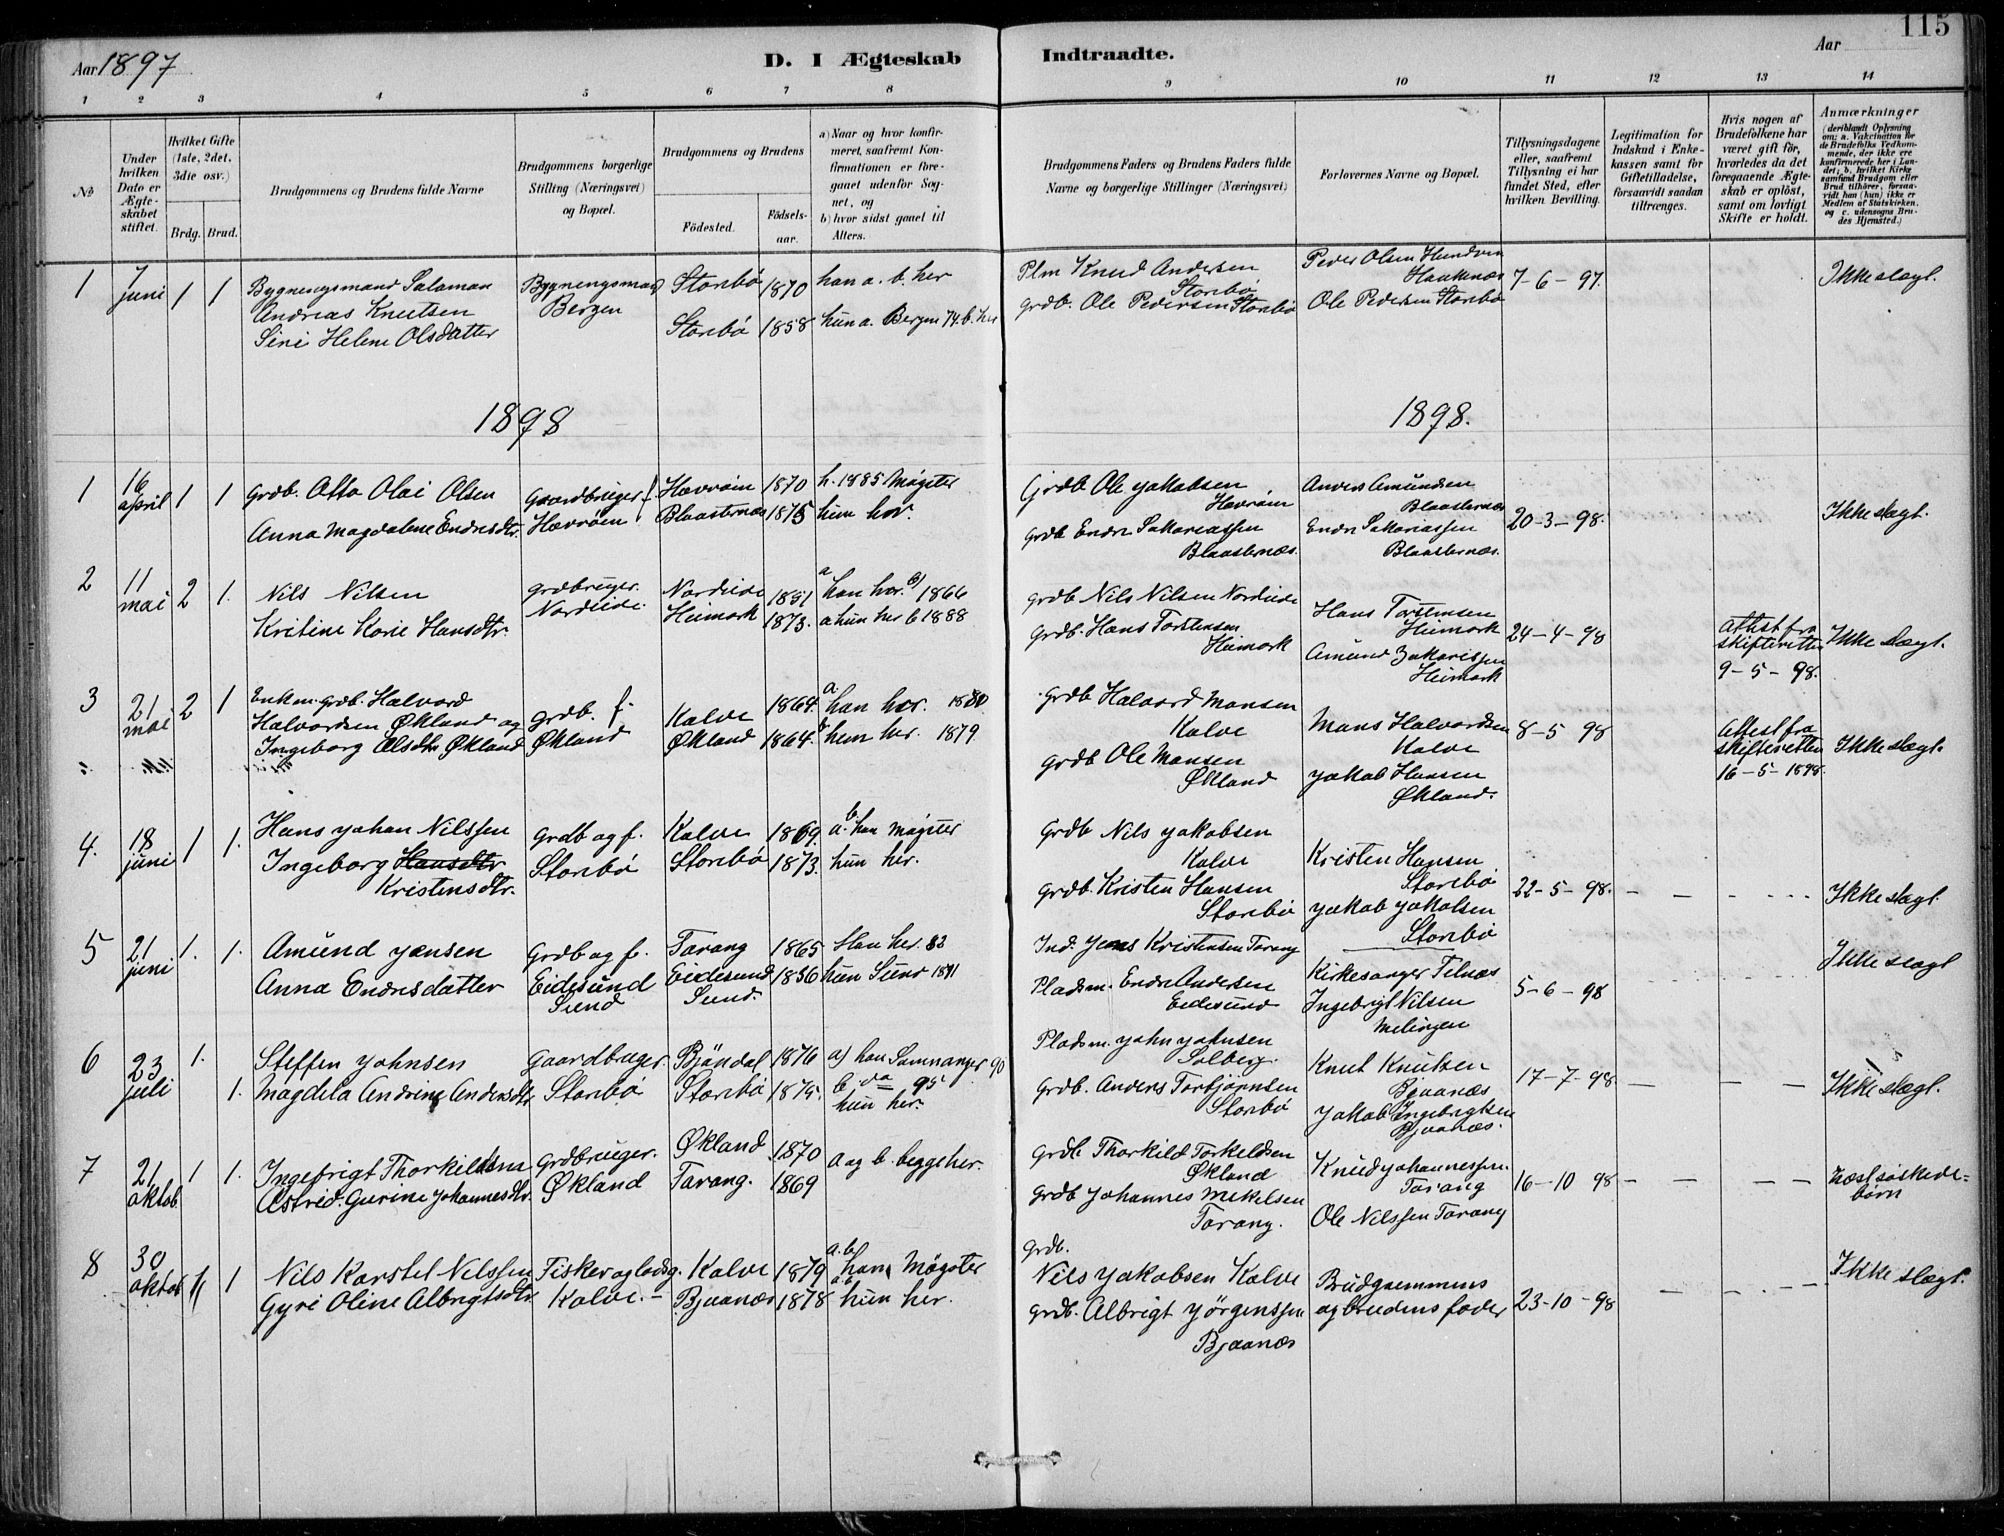 115
Aar 1897
D. I Ægteskab
Indtraadte.
Aar
1 2 3 4 5 6 7 8
9 10 11 12 13 14
No
Under hvilken Dato er Ægteskabet stiftet.
Hvilket Gifte (1ste, 2det, 3die osv.)
Brdg. Brud.
Brudgommens og Brudens fulde Navne
Brudgommens borgerlige Stilling (Næringsvei) og Bopæl.
Brudgommens og Brudens
Fødested.
Fødselsaar.
a) Naar og hvor konfirmeret, saafremt Konfirmationen er foregaaet udenfor Sognet, og
b) hvor sidst gaaet til Alters.
Brudgommens Faders og Brudens Faders fulde Navne og borgerlige Stillinger (Næringsvei)
Forlovernes Navne og Bopæl.
Tillysningsdagene eller, saafremt Tillysning ei har fundet Sted, efter hvilken Bevilling.
Legitimation for Indskud i Enkekassen samt for Giftetilladelse, forsaavidt saadan tiltrænges.
Hvis nogen af Brudefolkene har været gift før, hvorledes da det foregaaende Ægteskab er opløst, samt om lovligt Skifte er holdt.
Anmærkninger
(deriblandt Oplysning om: a. Vakcination for de Brudefolks Vedkommende, der ikke ere konfirmerede her i Landet; b. hvilket Kirkesamfund Brudgom eller Brud tilhører, forsaavidt han (hun) ikke er Medlem af Statskirken, og c. udensogns Brudes Hjemsted.)
1 7 juni 1 1 Bygningsmand Salamon Andreas Knutsen
Sini Helene Olsdatter
Bygningsmand Bergen
Storebø 1870 han a. b. her
Storebø 1858 hun a. Bergen 74. b. her
Plm Knud Andersen Storebø
grdb. Ole Pedersen Storebø
Peder Olsen Hundven Haaknæs
Ole Pedersen Storebø
7-6-97.
Ikke slægt.
1898
1898.
1 16 april 1 1 grdb. Otto Olai Olsen
Anna Magdalene Endresdtr.
Gaardbruger f. Hevrøen
Hævrøen 1870 h. 1885 Møgster
Blaasternæs 1875 hun her.
Grdb Ole Jakobsen Hevrøen
grdb Endre Sakariassen Blaasternæs.
Anders Amundsen Blaasternæs
Endre Sakariassen Blaasternæs.
20-3-98.
Ikke slægt.
2 11 mai 2 1. Nils Nilsen
Kristine Korie Hansdtr.
grdbruger. Nordeide.
Nordeide 1851 a han her. b) 1866
Heimark 1873. a hun her b 1888
grdb Nils Nilsen Nordeide
grdb. Hans Torstensen Heimark
Hans Torstensen Heimark
Amund Zakarissen Heimark
24-4-98
Attest fra skifteretten 9-5-98.
Ikke slægt.
3 21 mai 2 1 Enkem. grdb. Halvard
Halvardsen Økland og
Ingeborg Olsdtr Økland
grdb. f. Økland
Kalve 1864. a. han her. 1880
Økland 1864. b hun her. 1879
grdb Halvard Monsen Kalve
grdb Ole Monsen Økland
Mons Halvordsen Kalve
Jakob Hansen Økland.
8-5-98
Attest fra skifteretten 16-5-1898.
Ikke slægt.
4. 18 juni 1 1. Hans Johan Nilssen
Ingeborg Hansdtr Kristensdtr.
Grdb og f. Storebø
Kalve 1869. a. b han Møgster
Storebø 1873. hun her.
Grdb Nils Jakobsen Kalve
grdb. Kristen Hansen Storebø
Kristen Hansen Storebø
Jakob Jakobsen Storebø
22-5-98.
Ikke slægt.
5 21 juni 1. 1. Amund Jensen
Anna Endresdatter
Grdb og f. Eidesund Sund
Tarang 1865 Han her. 82
Eidesund Sund. 1856 hun Sund 1871
Ind. Jens Kristensen Tarang
Pladsm. Endre Andersen Eidesund
Kirkesanger Telnæs
Ingebrigt Nilsen Melingen
5-6-98
Ikke slægt
6 23 juli 1. 1. Steffen Johnsen
Magdela Andrine Andersdtr
Gaardbruger. Storebø
Bjøndal 1876 a) han Samnanger 90
b. da 95
Storebø 1875. hun her.
Pladsm. John Johnsen Solberg.
Grdb. Anders Torbjørnsen Storebø
Knut Knutsen Bjaanæs
Jakob Ingebrigtsen Bjaanæs.
17-7-98.
Ikke slægt.
7 21 oktob. 1 1. Ingebrigt Thorkildsen
Astrid Gurine Johannesdtr.
Grdbruger. Økland
Økland 1870 a og b. begge her.
Tarang. 1869
Grdb Thorkild Torkeldsen Økland
Grdb Johannes Mikelsen Tarang.
Knud Johannessen. Tarang
Ole Nilssen Tarang
16-10-98
Næstsøskendebørn
8 30 oktob 1 1 Nils Karstel Nilssen
Gyri Oline Albrigtsdtr.
Fisker og lodsg. Kalve.
Kalve 1879 a. b. han Møgster
Bjaanæs 1878 a b hun her.
Grdb. Nils Jakobsen Kalve
grdb. Albrigt Jørgenssen Bjaanæs
Brudgommens og brudens fader
23-10-98
Ikke slægt.